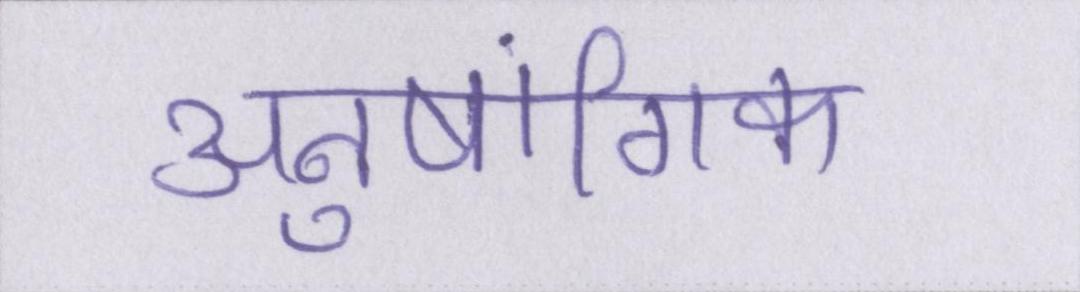 अनुषांगिक